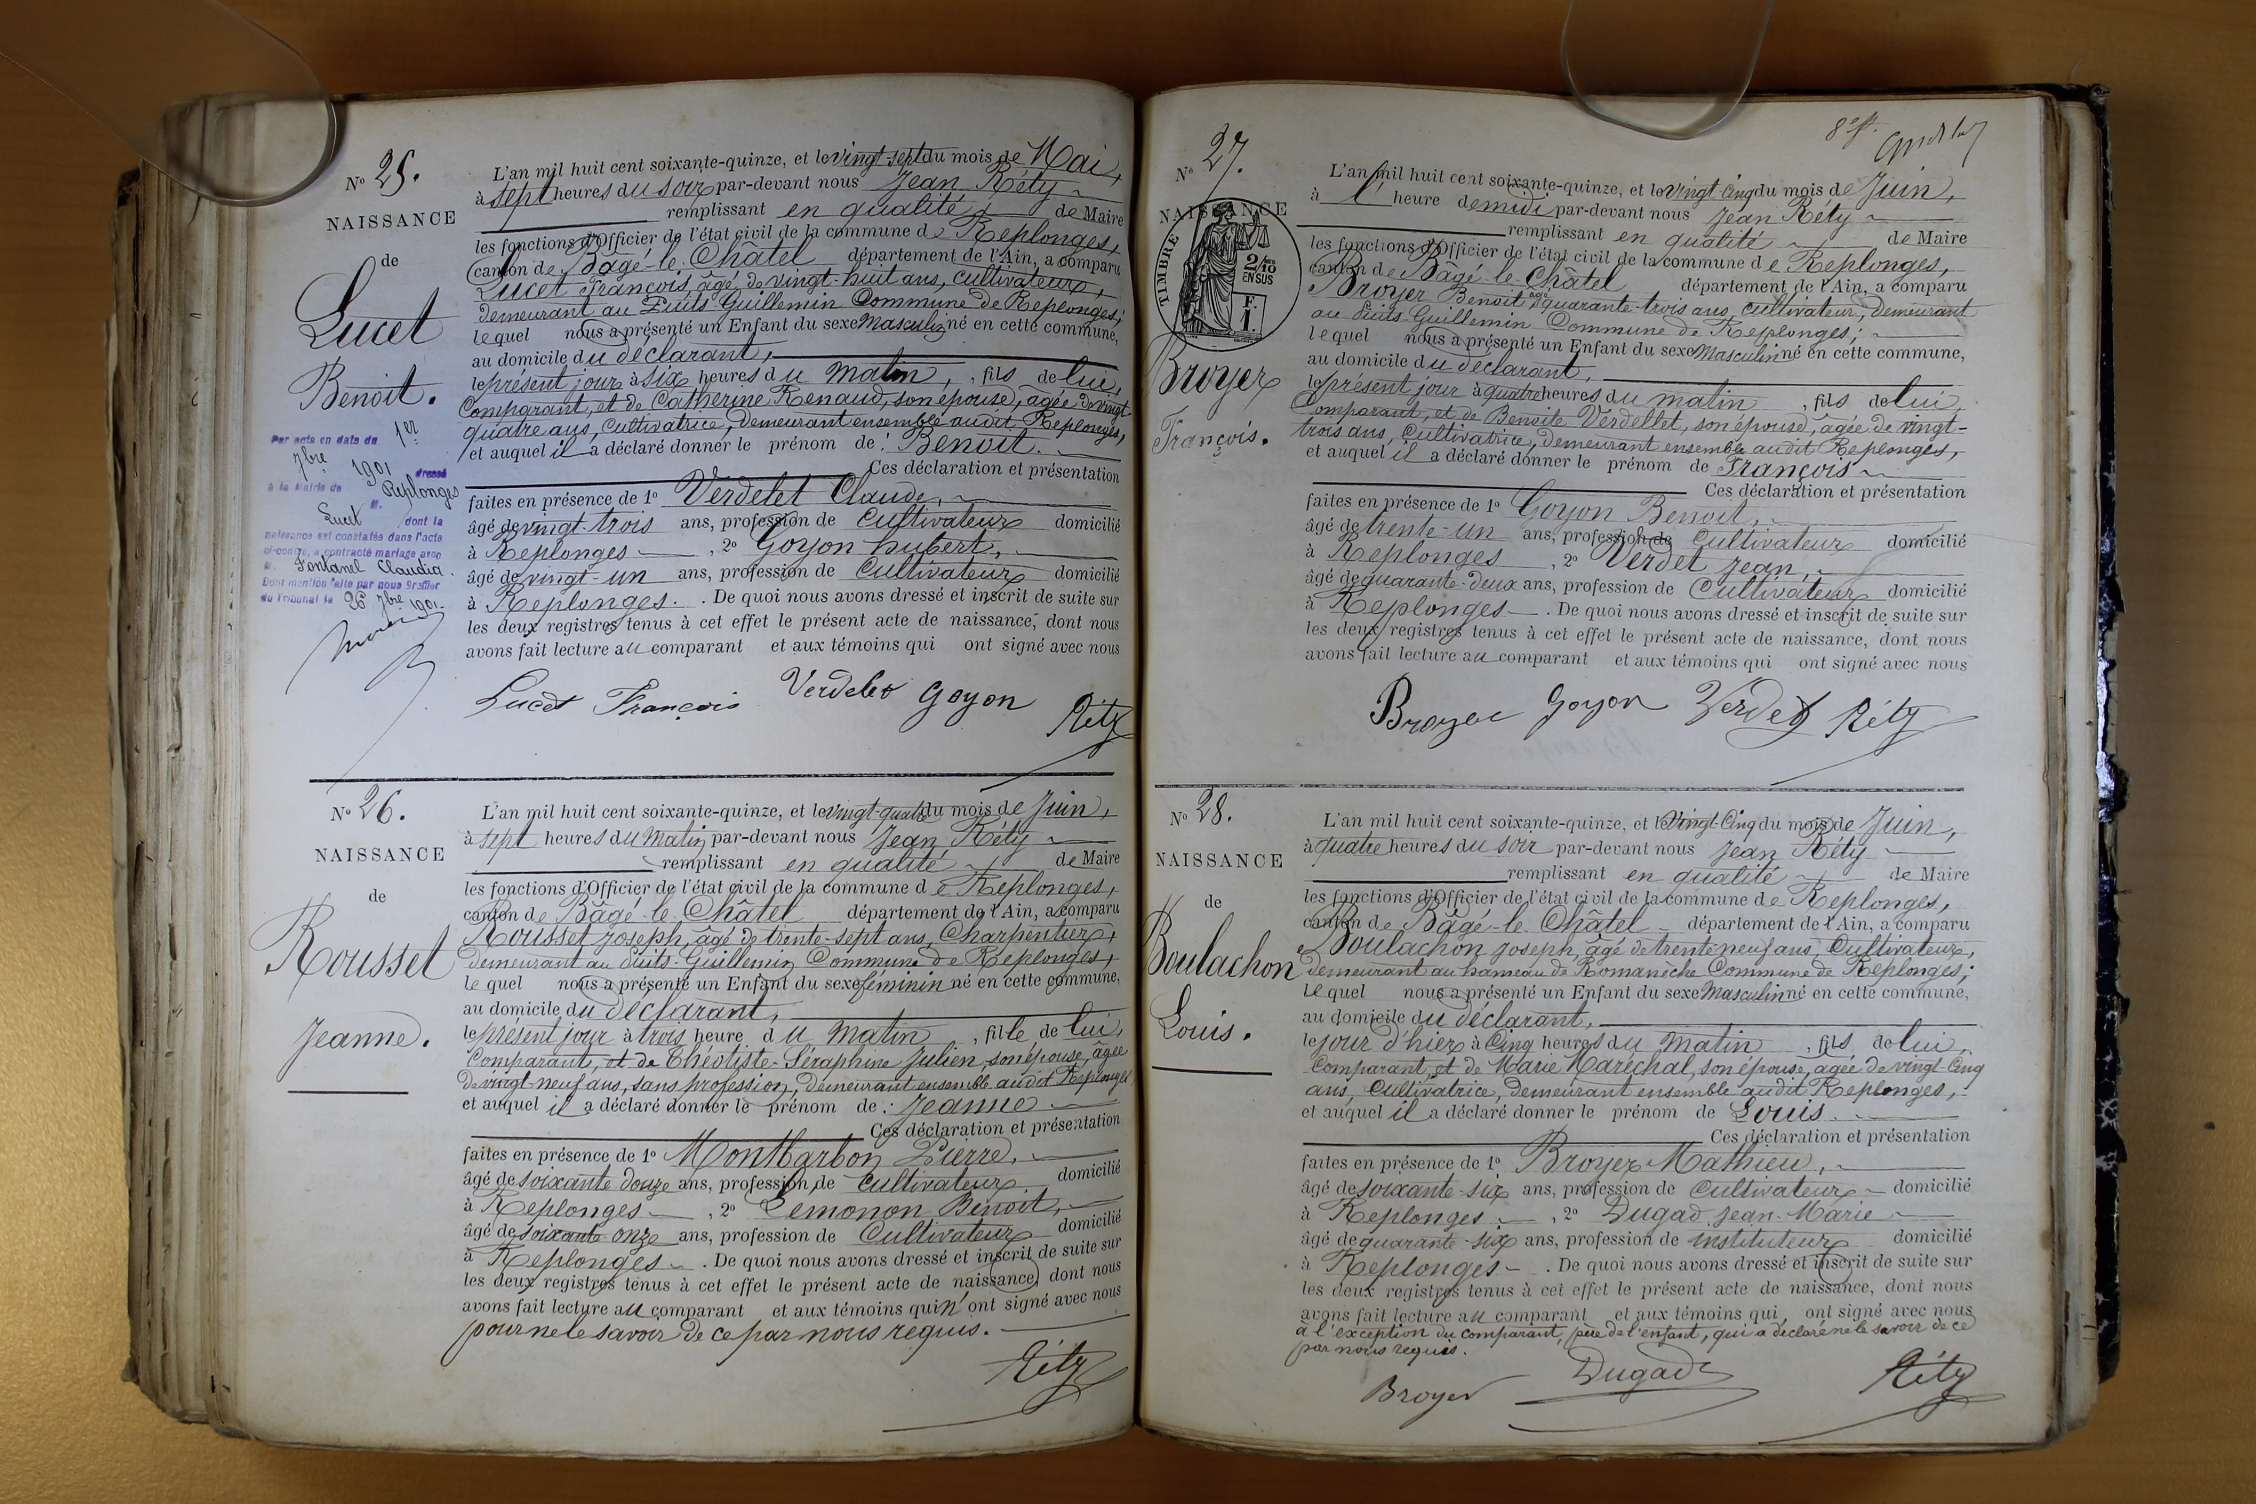 N° 25.
NAISSANCE
de
Lucet
Benoit.
Par acte en date du 1er
7bre 1901 dressé
à la Mairie de Replonges
M.
Lucet dont la
naissance est constatée dans l'acte
ci-contre, a contracté mariage avec
M. Fontanel Claudia.
Dont mention faite par nous Greffier
du Tribunal le 26 7bre 1901.
L'an mil huit cent soixante-quinze, et le vingt-sept du mois de Mai,
à sept heures du soir par-devant nous Jean Réty
remplissant en qualité de Maire
les fonctions d'Officier de l'état civil de la commune de Replonges,
canton de Bâgé-le-Châtel département de l'Ain, a comparu
Lucet François, âgé de vingt-huit ans, cultivateur,
demeurant au Puits-Guillemin Commune de Replonges;
lequel nous a présenté un Enfant du sexe Masculin né en cette commune,
au domicile du déclarant,
le présent jour à six heures du matin, , fils de lui,
Comparant, et de Catherine Renaud, son épouse, âgée de vingt-
quatre ans, cultivatrice, demeurant ensemble audit Replonges,
et auquel il a déclaré donner le prénom de : Benoit.
Ces déclaration et présentation
faites en présence de 1° Verdelet Claude,
âgé de vingt-trois ans, profession de cultivateur domicilié
à Replonges , 2° Goyon hubert,
âgé de vingt-un ans, profession de Cultivateur domicilié
à Replonges. . De quoi nous avons dressé et inscrit de suite sur
les deux registres tenus à cet effet le présent acte de naissance, dont nous
avons fait lecture au comparant et aux témoins qui ont signé avec nous
Lucet François Verdelet Goyon Réty
N° 26.
NAISSANCE
de
Rousset
Jeanne.
L'an mil huit cent soixante-quinze, et le vingt-quatre du mois de Juin,
à sept heures du Matin par-devant nous Jean Réty
remplissant en qualité de Maire
les fonctions d'Officier de l'état civil de la commune de Replonges,
canton de Bâgé-le-Châtel département de l'Ain, a comparu
Rousset Joseph, âgé de trente-sept ans, Charpentier,
demeurant au Puits-Guillemin Commune de Replonges,
lequel nous a présenté un Enfant du sexe féminin né en cette commune,
au domicile du déclarant,
le présent jour à trois heure du matin , fille de lui,
Comparant, et de Théotiste-Séraphine Julien, son épouse, âgée
de vingt-neuf ans, sans profession, demeurant ensemble audit Replonges
et auquel il a déclaré donner le prénom de : Jeanne
Ces déclaration et présentation
faites en présence de 1° Montbarbon Pierre,
âgé de soixante douze ans, profession de cultivateur domicilié
à Replonges , 2° Lemonon Benoit,
âgé de soixante onze ans, profession de Cultivateur domicilié
à Replonges . De quoi nous avons dressé et inscrit de suite sur
les deux registres tenus à cet effet le présent acte de naissance, dont nous
avons fait lecture au comparant et aux témoins qui n'ont signé avec nous
pour ne le savoir de ce par nous requis.
Réty
8e f.
N° 27.
NAISSANCE
TIMBRE
2/10
EN SUS
F.
1.
Broyer
François.
L'an mil huit cent soixante-quinze, et le vingt-cinq du mois de Juin,
à l' heure de midi par-devant nous Jean Réty
remplissant en qualité de Maire
les fonctions d'Officier de l'état civil de la commune de Replonges,
canton de Bâgé-le-Châtel département de l'Ain, a comparu
Broyer Benoit âgé quarante-trois ans, cultivateur, demeurant
au Puits-Guillemin Commune de Replonges;
lequel nous a présenté un Enfant du sexe Masculin né en cette commune,
au domicile du déclarant,
le présent jour à quatre heures du matin , fils de lui,
Comparant, et de Benoite Verdellet, son épouse, âgée de vingt-
trois ans, Cultivatrice, demeurant ensemble audit Replonges,
et auquel il a déclaré donner le prénom de François
Ces déclaration et présentation
faites en présence de 1° Goyon Benoit,
âgé de trente-un ans, profession de Cultivateur domicilié
à Replonges , 2° Verdet Jean,
âgé de quarante-deux ans, profession de Cultivateur domicilié
à Replonges . De quoi nous avons dressé et inscrit de suite sur
les deux registres tenus à cet effet le présent acte de naissance, dont nous
avons fait lecture au comparant et aux témoins qui ont signé avec nous
Broyer Goyon Verdet Réty
N° 28.
NAISSANCE
de
Boulachon
Louis.
L'an mil huit cent soixante-quinze, et le Vingt-Cinq du mois de Juin,
à quatre heures du soir par-devant nous Jean Réty
remplissant en qualité de Maire
les fonctions d'Officier de l'état civil de la commune de Replonges,
canton de Bâgé-le-Châtel département de l'Ain, a comparu
Boulachon Joseph, âgé de trente-neuf ans, Cultivateur,
demeurant au hameau de Romanèche Commune de Replonges;
lequel nous a présenté un Enfant du sexe Masculin né en cette commune,
au domicile du déclarant,
le jour d'hier à Cinq heures du matin , fils de lui,
Comparant, et de Marie Maréchal, son épouse, âgée de vingt-Cinq
ans, Cultivatrice, demeurant ensemble audit Replonges,
et auquel il a déclaré donner le prénom de Louis.
Ces déclaration et présentation
faites en présence de 1° Broyer Mathieu,
âgé de soixante-six ans, profession de cultivateur domicilié
à Replonges , 2° Dugad Jean-Marie
âgé de quarante-six ans, profession de instituteur domicilié
à Replonges . De quoi nous avons dressé et inscrit de suite sur
les deux registres tenus à cet effet le présent acte de naissance, dont nous
avons fait lecture au comparant et aux témoins qui ont signé avec nous
à l'exception du comparant, père de l'enfant, qui a déclaré ne le savoir de ce
par nous requis.
Broyer Dugad Réty